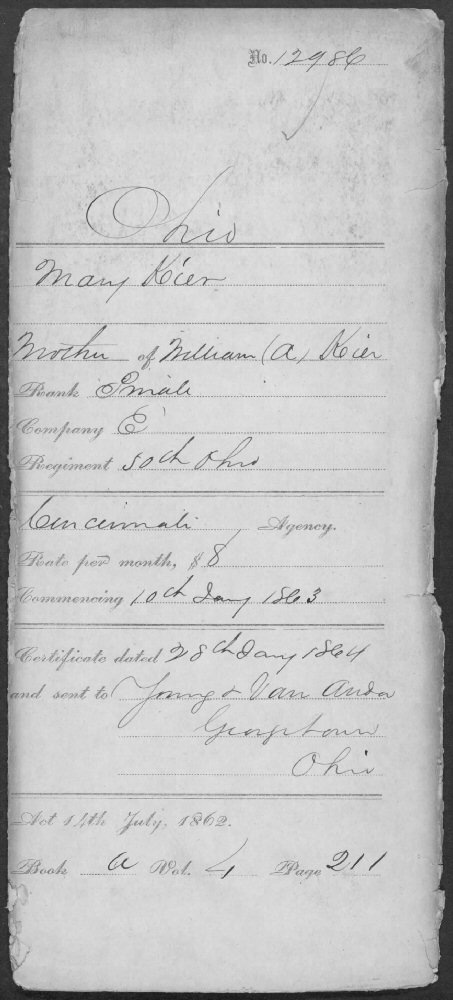 No. 12986
Ohio
Mary Kier
Mother of William (A) Kier
Rank Private
Company E
Regiment 50th Ohio
Cincinnati Agency.
Rate per month, $ 8
Commencing 10th Jany 1863
Certificate dated 28th Jany 1864
and sent to Young & Van Anda
Georgetown
Ohio
Act 14th July, 1862.
Book A Vol. 4 Page 211